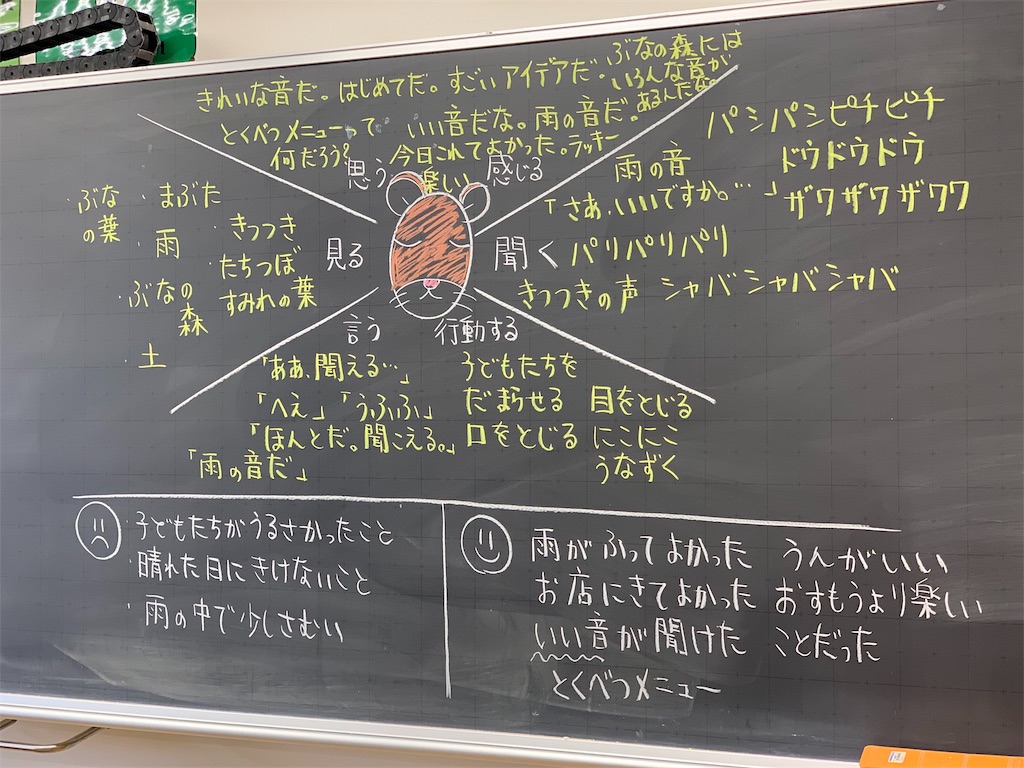 きれいな音だ。はじめてだ。すごいアイデアだ。
ぶなの森には
いろんな音が
あるんだな。
とくべつメニューって
何だろう?
いい音だな。雨の音だ。
今日これてよかった。ラッキー
楽しい
思う
感じる
・ぶな
の葉
・まぶた
・雨
・きつつき
・たちつぼ
すみれの葉
・ぶなの
森
・土
見る
聞く
パシパシピチピチ
雨の音
ドウドウドウ
「さあ、いいですか。…」
ザワザワザワワ
パリパリパリ
きつつきの声
シャバシャバシャバ
言う
「ああ、聞える…」
「へえ」「うふふ」
「ほんとだ。聞こえる。」
「雨の音だ」
行動する
子どもたちを
だまらせる
口をとじる
目をとじる
にこにこ
うなずく
・子どもたちがうるさかったこと
・晴れた日にきけないこと
・雨の中で少しさむい
雨がふってよかった
お店にきてよかった
いい音が聞けた
とくべつメニュー
うんがいい
おすもうより楽しい
ことだった